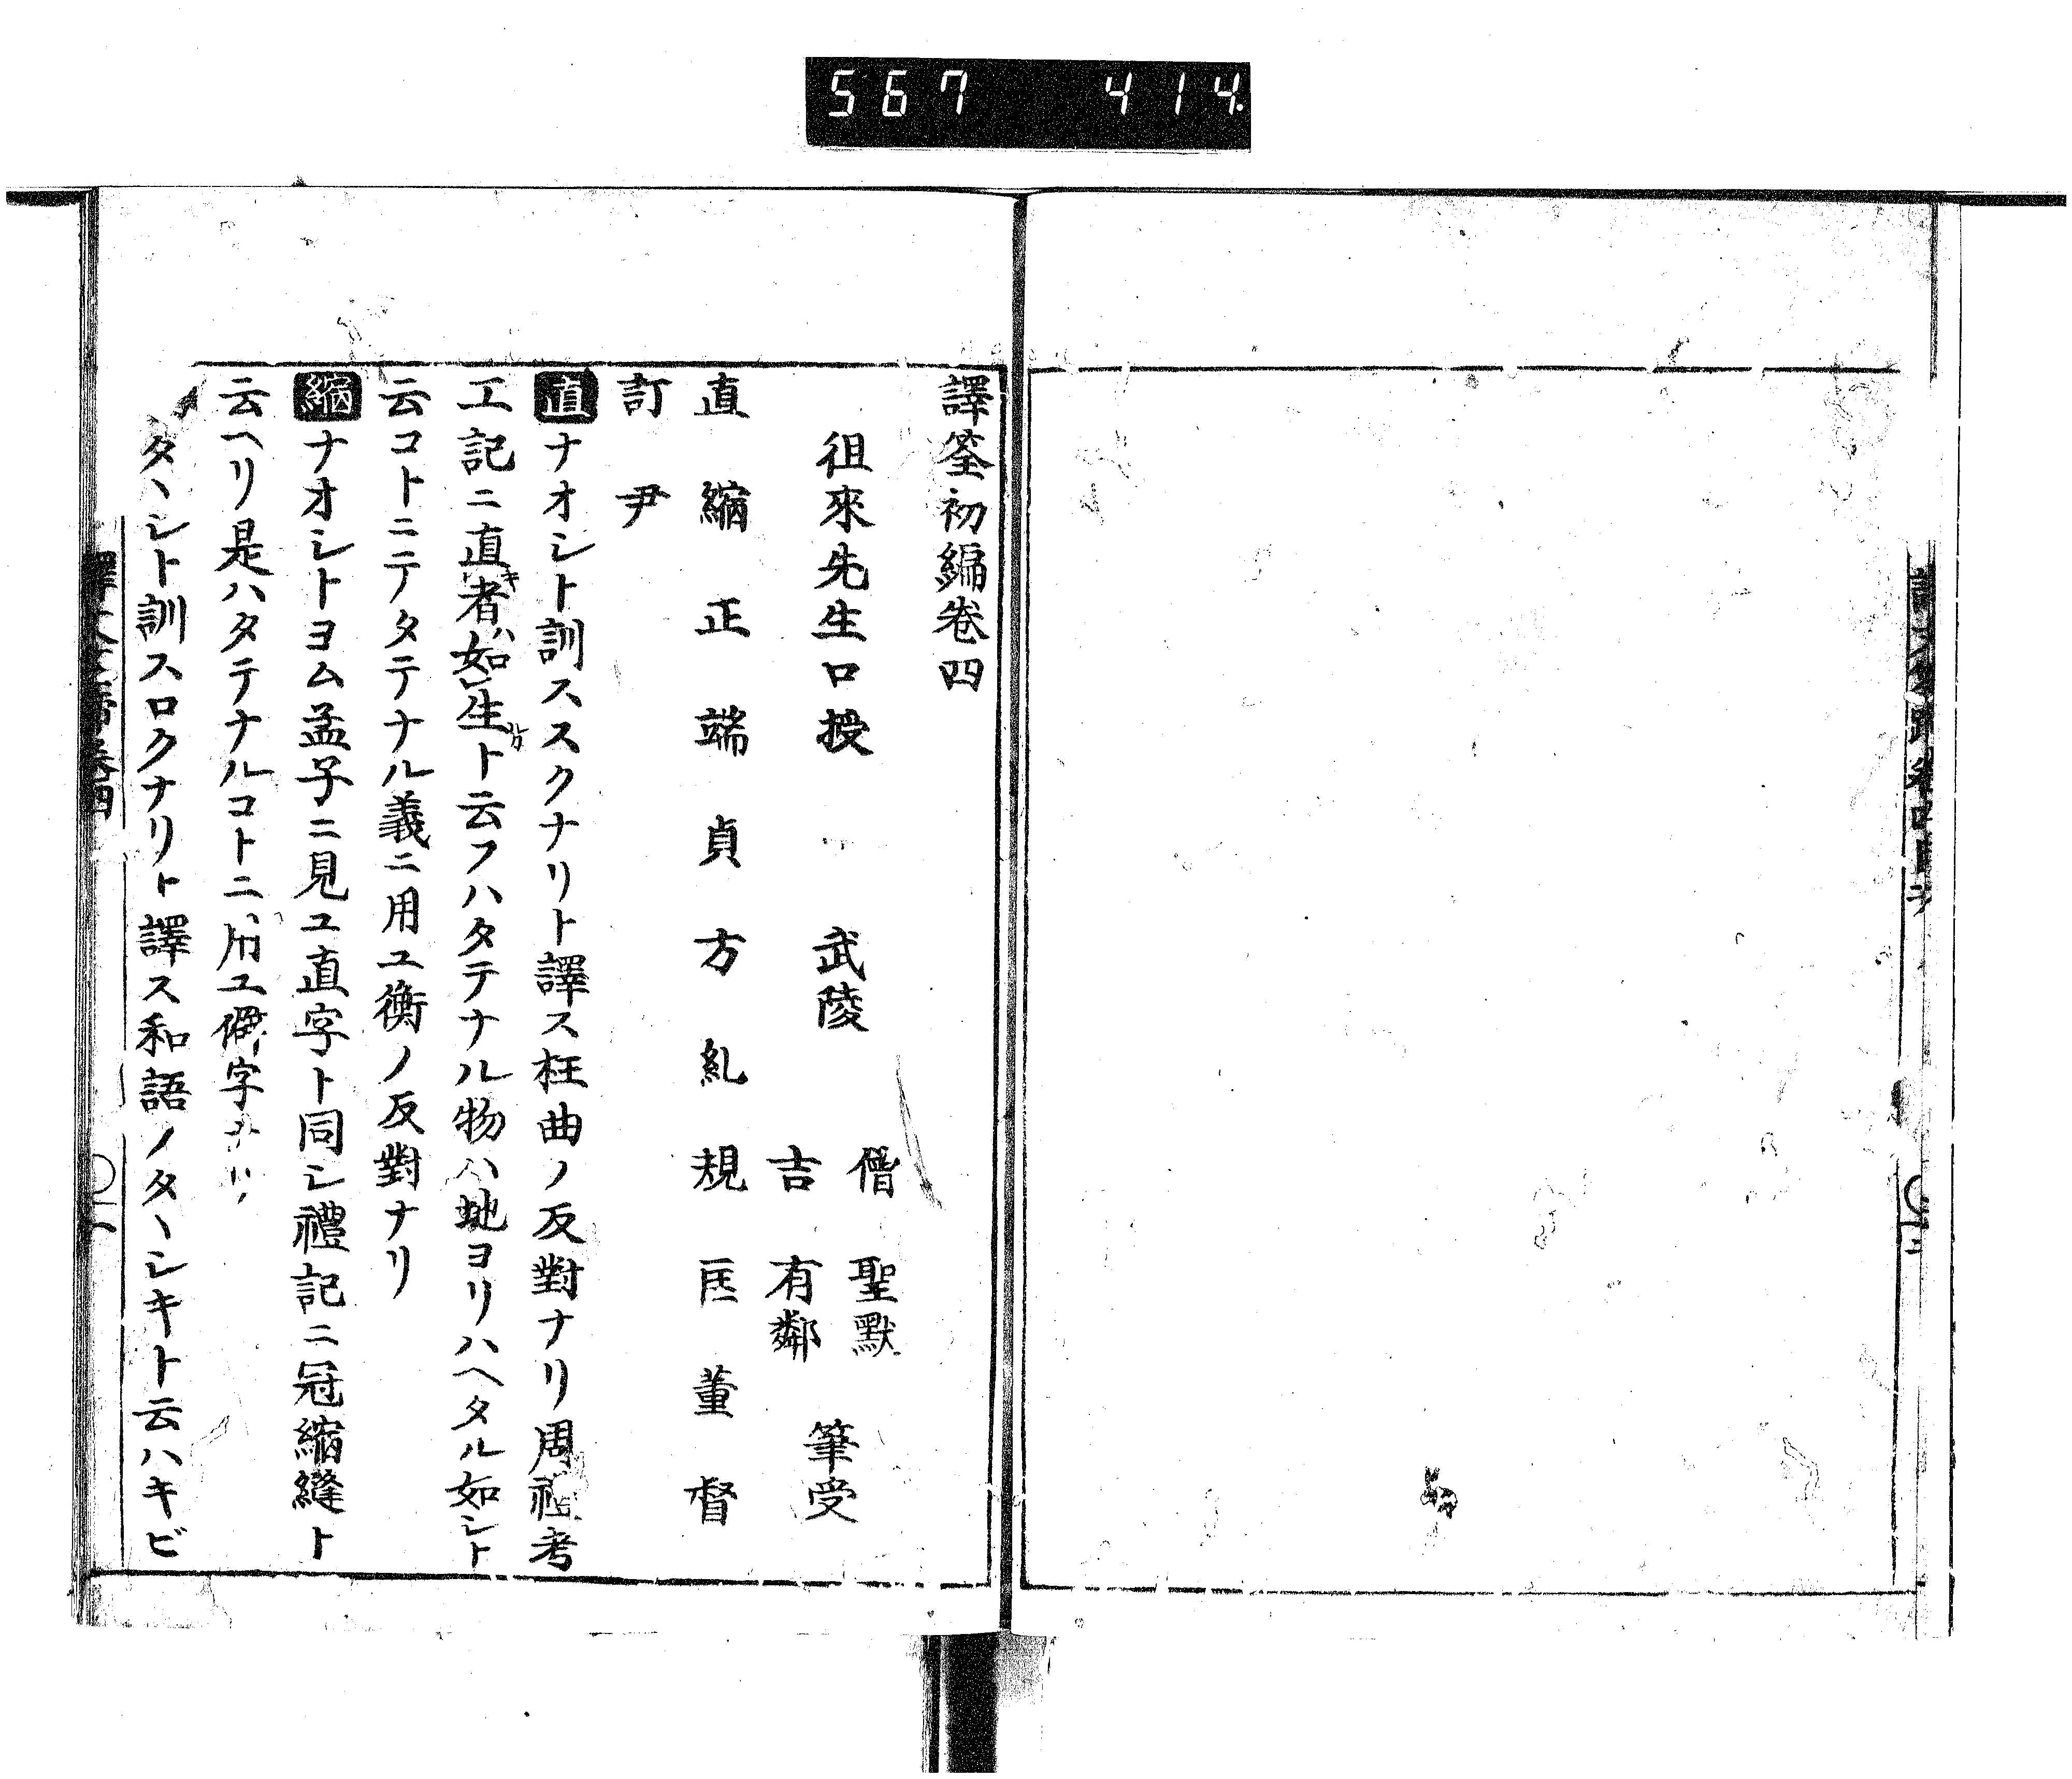 567 414
譯筌初編卷四
徂來先生口授 武陵 僧 聖默
吉 有鄰 筆受
直 縮 正 端 貞 方 糺 規 匡 董 督
訂 尹
直ナオシト訓ススクナリト譯ス枉曲ノ反對ナリ周禮考
工記ニ直者如生ト云フハタテナル物ハ地ヨリハヘタル如シト
云コトニテタテナル義ニ用ユ衡ノ反對ナリ
縮ナオシトヨム孟子ニ見ユ直字ト同シ禮記ニ冠縮縫ト
云ヘリ是ハタテナルコトニ用ユ 字ナリ
タヽシト訓スロクナリト譯ス和語ノタヽシキト云ハキビ
卷四